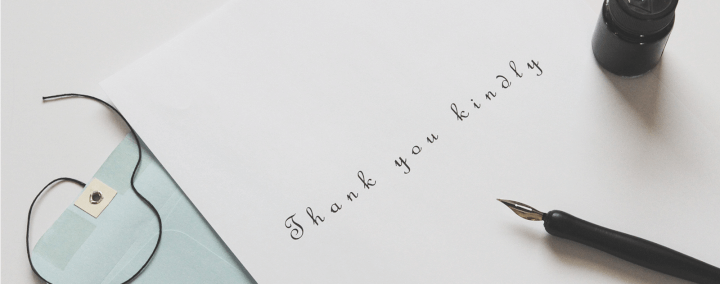 Thank you kindly